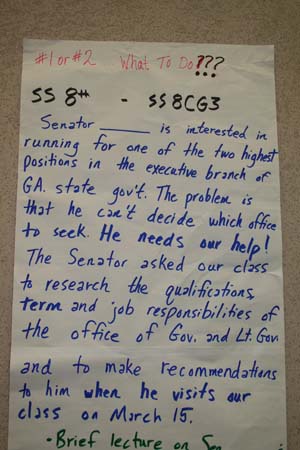 #1 or #2 What To Do???
SS 8th - SS8CG3
Senator ______ is interested in
running for one of the two highest
positions in the executive branch of
GA. state gov't. The problem is
that he can't decide which office
to seek. He needs our help!
The Senator asked our class
to research the qualifications,
term and job responsibilities of
the office of Gov. and Lt. Gov
and to make recommendations
to him when he visits our
class on March 15.
• Brief lecture on Sen